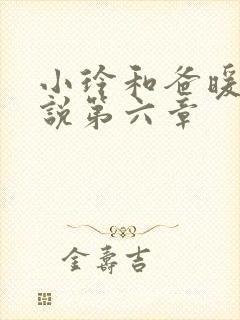 小玲和爸暖
說第六章
金壽吉